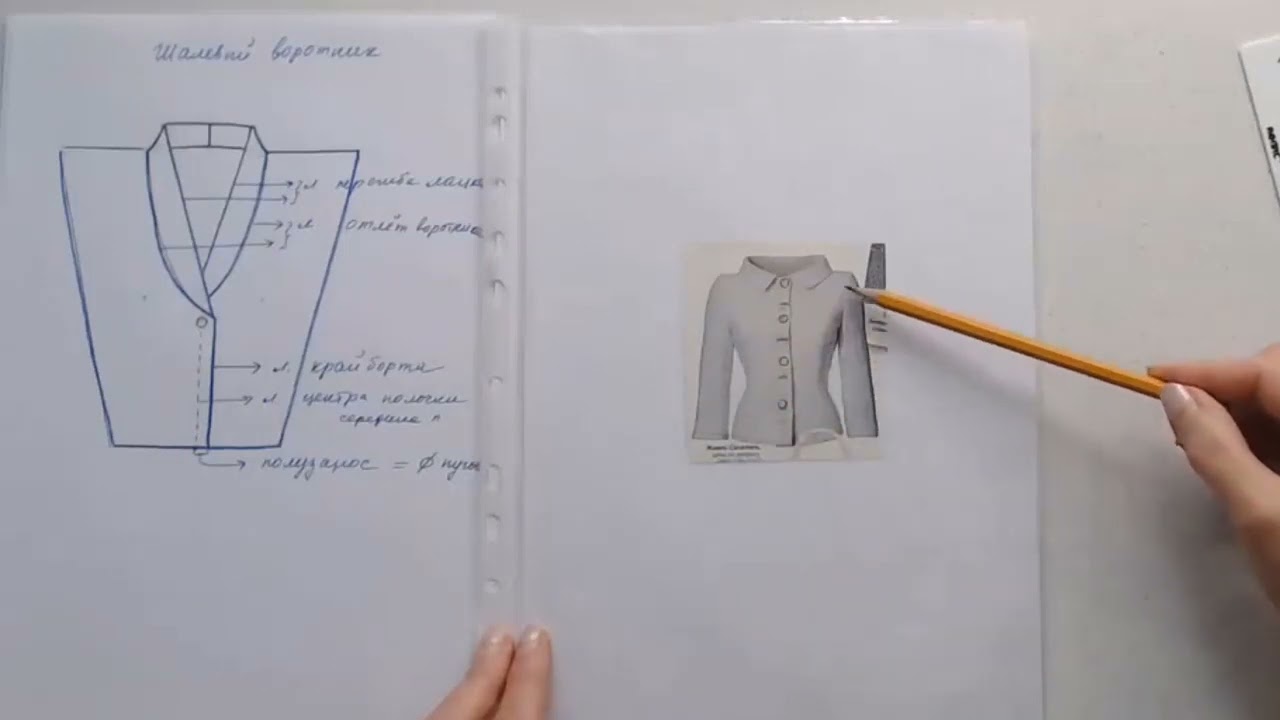 Шалевый воротник
л перегиба лацк
л отлёт воротника
л. край борта
л центра полочки
середина п
полузанос = ф пугов